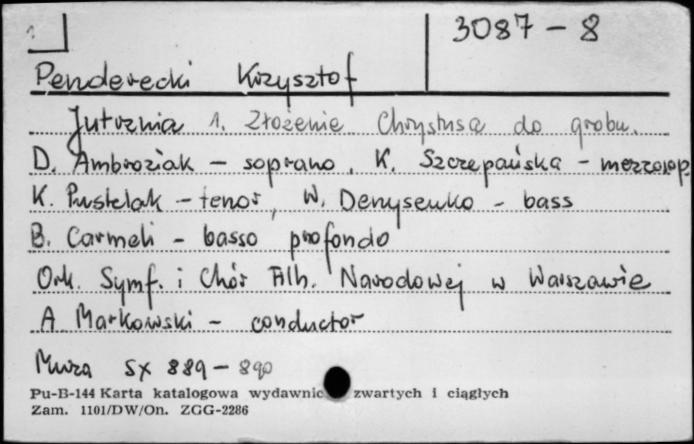 3087 - 8
Penderecki Krzysztof
Jutrznia 1. Złożenie Chrystusa do grobu.
D. Ambroziak - soprano, K. Szczepańska - mezzosop
K. Pustelak - tenor, W. Denysenko - bass
B. Carmeli - basso profondo
Ork. Symf. i Chór Filh. Narodowej w Warszawie
A Markowski - conductor
Muza SX 889 - 890
Pu-B-144 Karta katalogowa wydawnic zwartych i ciągłych
Zam. 1101/DW/On. ZGG-2286